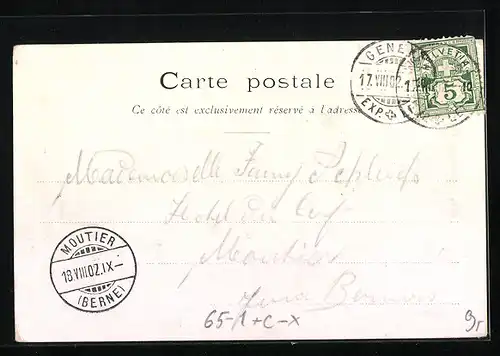 Carte postale
Ce côté est exclusivement réservé à l'adresse
GENEV
17.VIII.02.
EXP.
HELVETIA
5
Mademoiselle Fanny
Hotel du Cerf
Moutier
Jura Bernois
MOUTIER
18.VIII.02.IX-
(BERNE)
65-1+C-X
9r